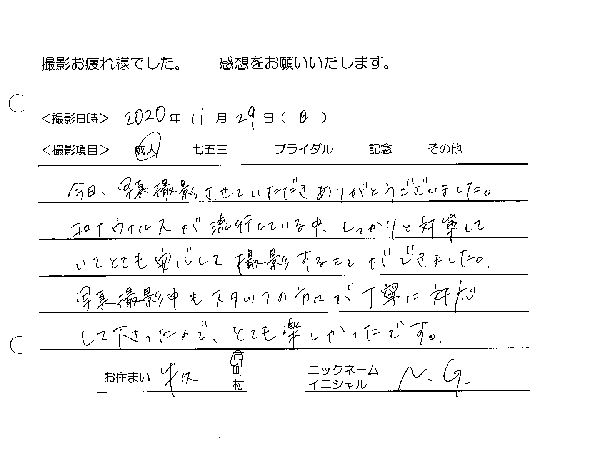 撮影お疲れ様でした。 感想をお願いいたします。
<撮影日時> 2020年 11月 29日(日)
<撮影項目> 成人 七五三 ブライダル 記念 その他
今日、写真撮影させていただきありがとうございました。
コロナウイルスが流行している中、しっかりと対策して
いてとても安心して撮影することができました。
写真撮影中もスタッフの方々が丁寧に対応
して下さったので、とても楽しかったです。
お住まい 牛久 市町村 ニックネーム イニシャル N.G.